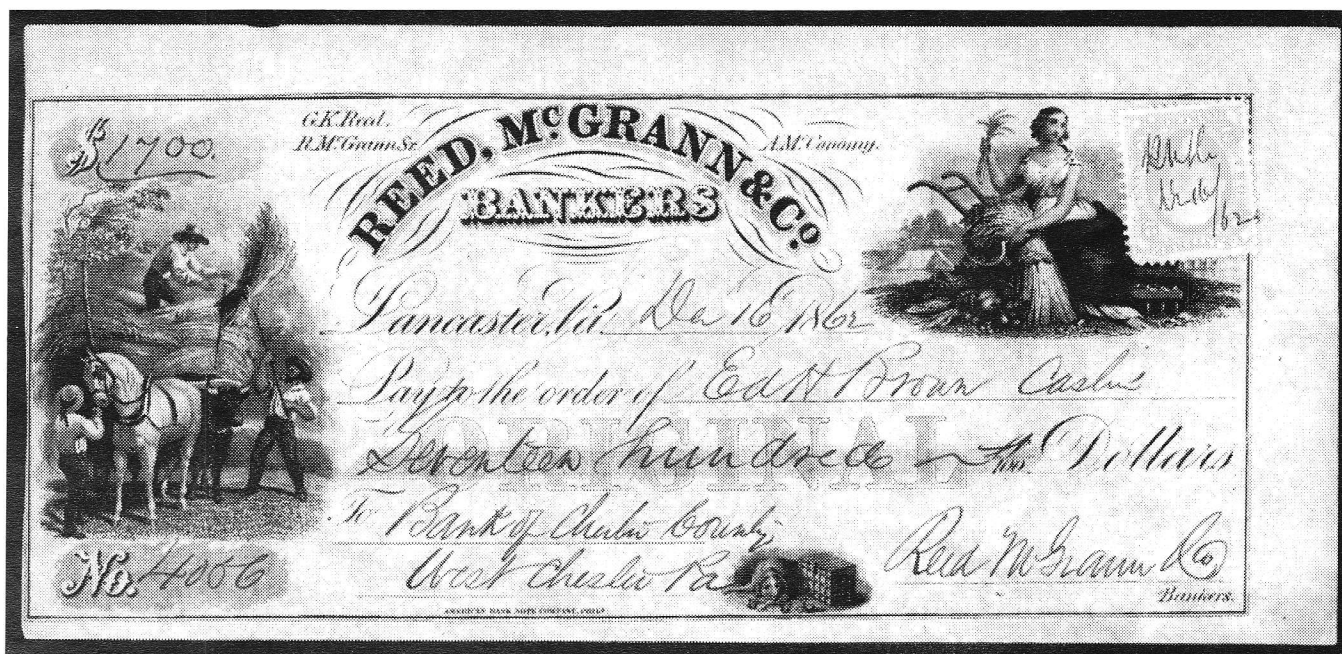 $1700.
G.K.Reed.
R.McGrann Sr.
A.McConomy.
REED, McGRANN & Co.
BANKERS
Lancaster, Pa. Dec 16 1862
Pay to the order of Ed H Brown Cashr
ORIGINAL
Seventeen hundred Dollars
To Bank of Chester County
West Chester Pa
No. 4066
Reed McGrann & Co
Bankers.
AMERICAN BANK NOTE COMPANY, PHILA.
Dec 16/62